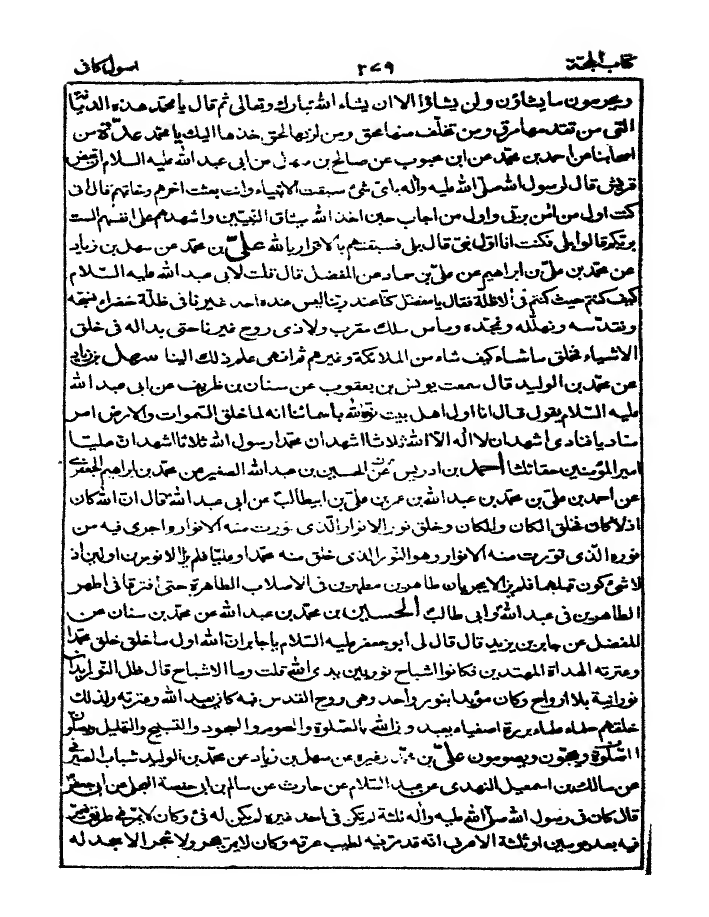 كتاب الحجة ٢٧٩ اصول كافى
ويحرمون ما يشاؤن ولن يشاؤا الا ان يشاء الله تبارك وتعالى ثم قال يا محمد هذه الديانة
التى من تقدمها مرق ومن تخلف عنها محق ومن لزمها لحق خذها اليك يا محمد عدّة من
اصحابنا عن احمد بن محمد عن ابن محبوب عن صالح بن سهل عن ابى عبد الله عليه السلام ان بعض
قريش قال لرسول الله صلى الله عليه وآله باى شئ سبقت الانبياء وانت بعثت اخرهم وخاتمهم قال انى
كنت اول من امن بربى واول من اجاب حين اخذ الله ميثاق النبيين واشهدهم على انفسهم الست
بربكم قالوا بلى فكنت انا اول نبى قال بلى فسبقتهم بالاقرار بالله علىّ بن محمد عن سهل بن زياد
عن محمد بن على بن ابراهيم عن على بن حماد عن المفضل قال قلت لابى عبد الله عليه السلام
كيف كنتم حيث كنتم فى الاظلة فقال يا مفضل كنا عند ربنا ليس عنده احد غيرنا فى ظلة خضراء نسبحه
ونقدسه ونهلله ونمجده وما من ملك مقرب ولا ذى روح غيرنا حتى بدا له فى خلق
الاشياء فخلق ما شاء كيف شاء من الملائكة وغيرهم ثم انهى علم ذلك الينا سهل بن زياد
عن محمد بن الوليد قال سمعت يونس بن يعقوب عن سنان بن ظريف عن ابى عبد الله
عليه السلام يقول قال انا اول اهل بيت نوه الله باسمائنا انه لما خلق السموات والارض امر
مناديا فنادى اشهد ان لا اله الا الله ثلاثا اشهد ان محمدا رسول الله ثلاثا اشهد ان عليا
امير المؤمنين حقا ثلثا احمد بن ادريس عن الحسين بن عبد الله الصغير عن محمد بن ابراهيم الجعفرى
عن احمد بن على بن محمد بن عبد الله بن عمر بن على بن ابيطالب عن ابى عبد الله قال ان الله كان
اذ لا كان فخلق الكان والمكان وخلق نور الانوار الذى نورت منه الانوار واجرى فيه من
نوره الذى نورت منه الانوار وهو النور الذى خلق منه محمدا وعليا فلم يزالا نورين اولين اذ
لا شئ كون قبلهما فلم يزالا يجريان طاهرين مطهرين فى الاصلاب الطاهرة حتى افترقا فى اطهر
الطاهرين فى عبد الله وابى طالب الحسين بن محمد بن عبد الله عن محمد بن سنان عن
المفضل عن جابر بن يزيد قال قال لى ابو جعفر عليه السلام يا جابر ان الله اول ما خلق خلق محمدا
وعترته الهداة المهتدين فكانوا اشباح نور بين يدى الله قلت وما الاشباح قال ظل النور ابدان
نورانية بلا ارواح وكان مؤيدا بنور واحد وهى روح القدس فبه كان يعبد الله وعترته ولذلك
خلقهم حلماء علماء بررة اصفياء يعبدون الله بالصلوة والصوم والسجود والتسبيح والتهليل ويصلون
الصلوة ويحجون ويصومون علىّ بن محمد وغيره عن سهل بن زياد عن محمد بن الوليد شباب الصيرفى
عن مالك بن اسمعيل النهدى عن عبد السلام بن حارث عن سالم بن ابى حفصة العجلى عن ابى جعفر
قال كان فى رسول الله صلى الله عليه وآله ثلثة لم تكن فى احد غيره لم يكن له فئ وكان لا يمر فى طريق فيمر
فيه بعد يومين او ثلثة الا عرف انه قد مر فيه لطيب عرفه وكان لا يمر بحجر ولا شجر الا سجد له